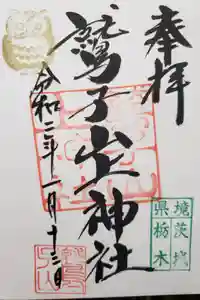 奉拝
鷲子山上神社
令和二年一月十三日
境茨城
県栃木